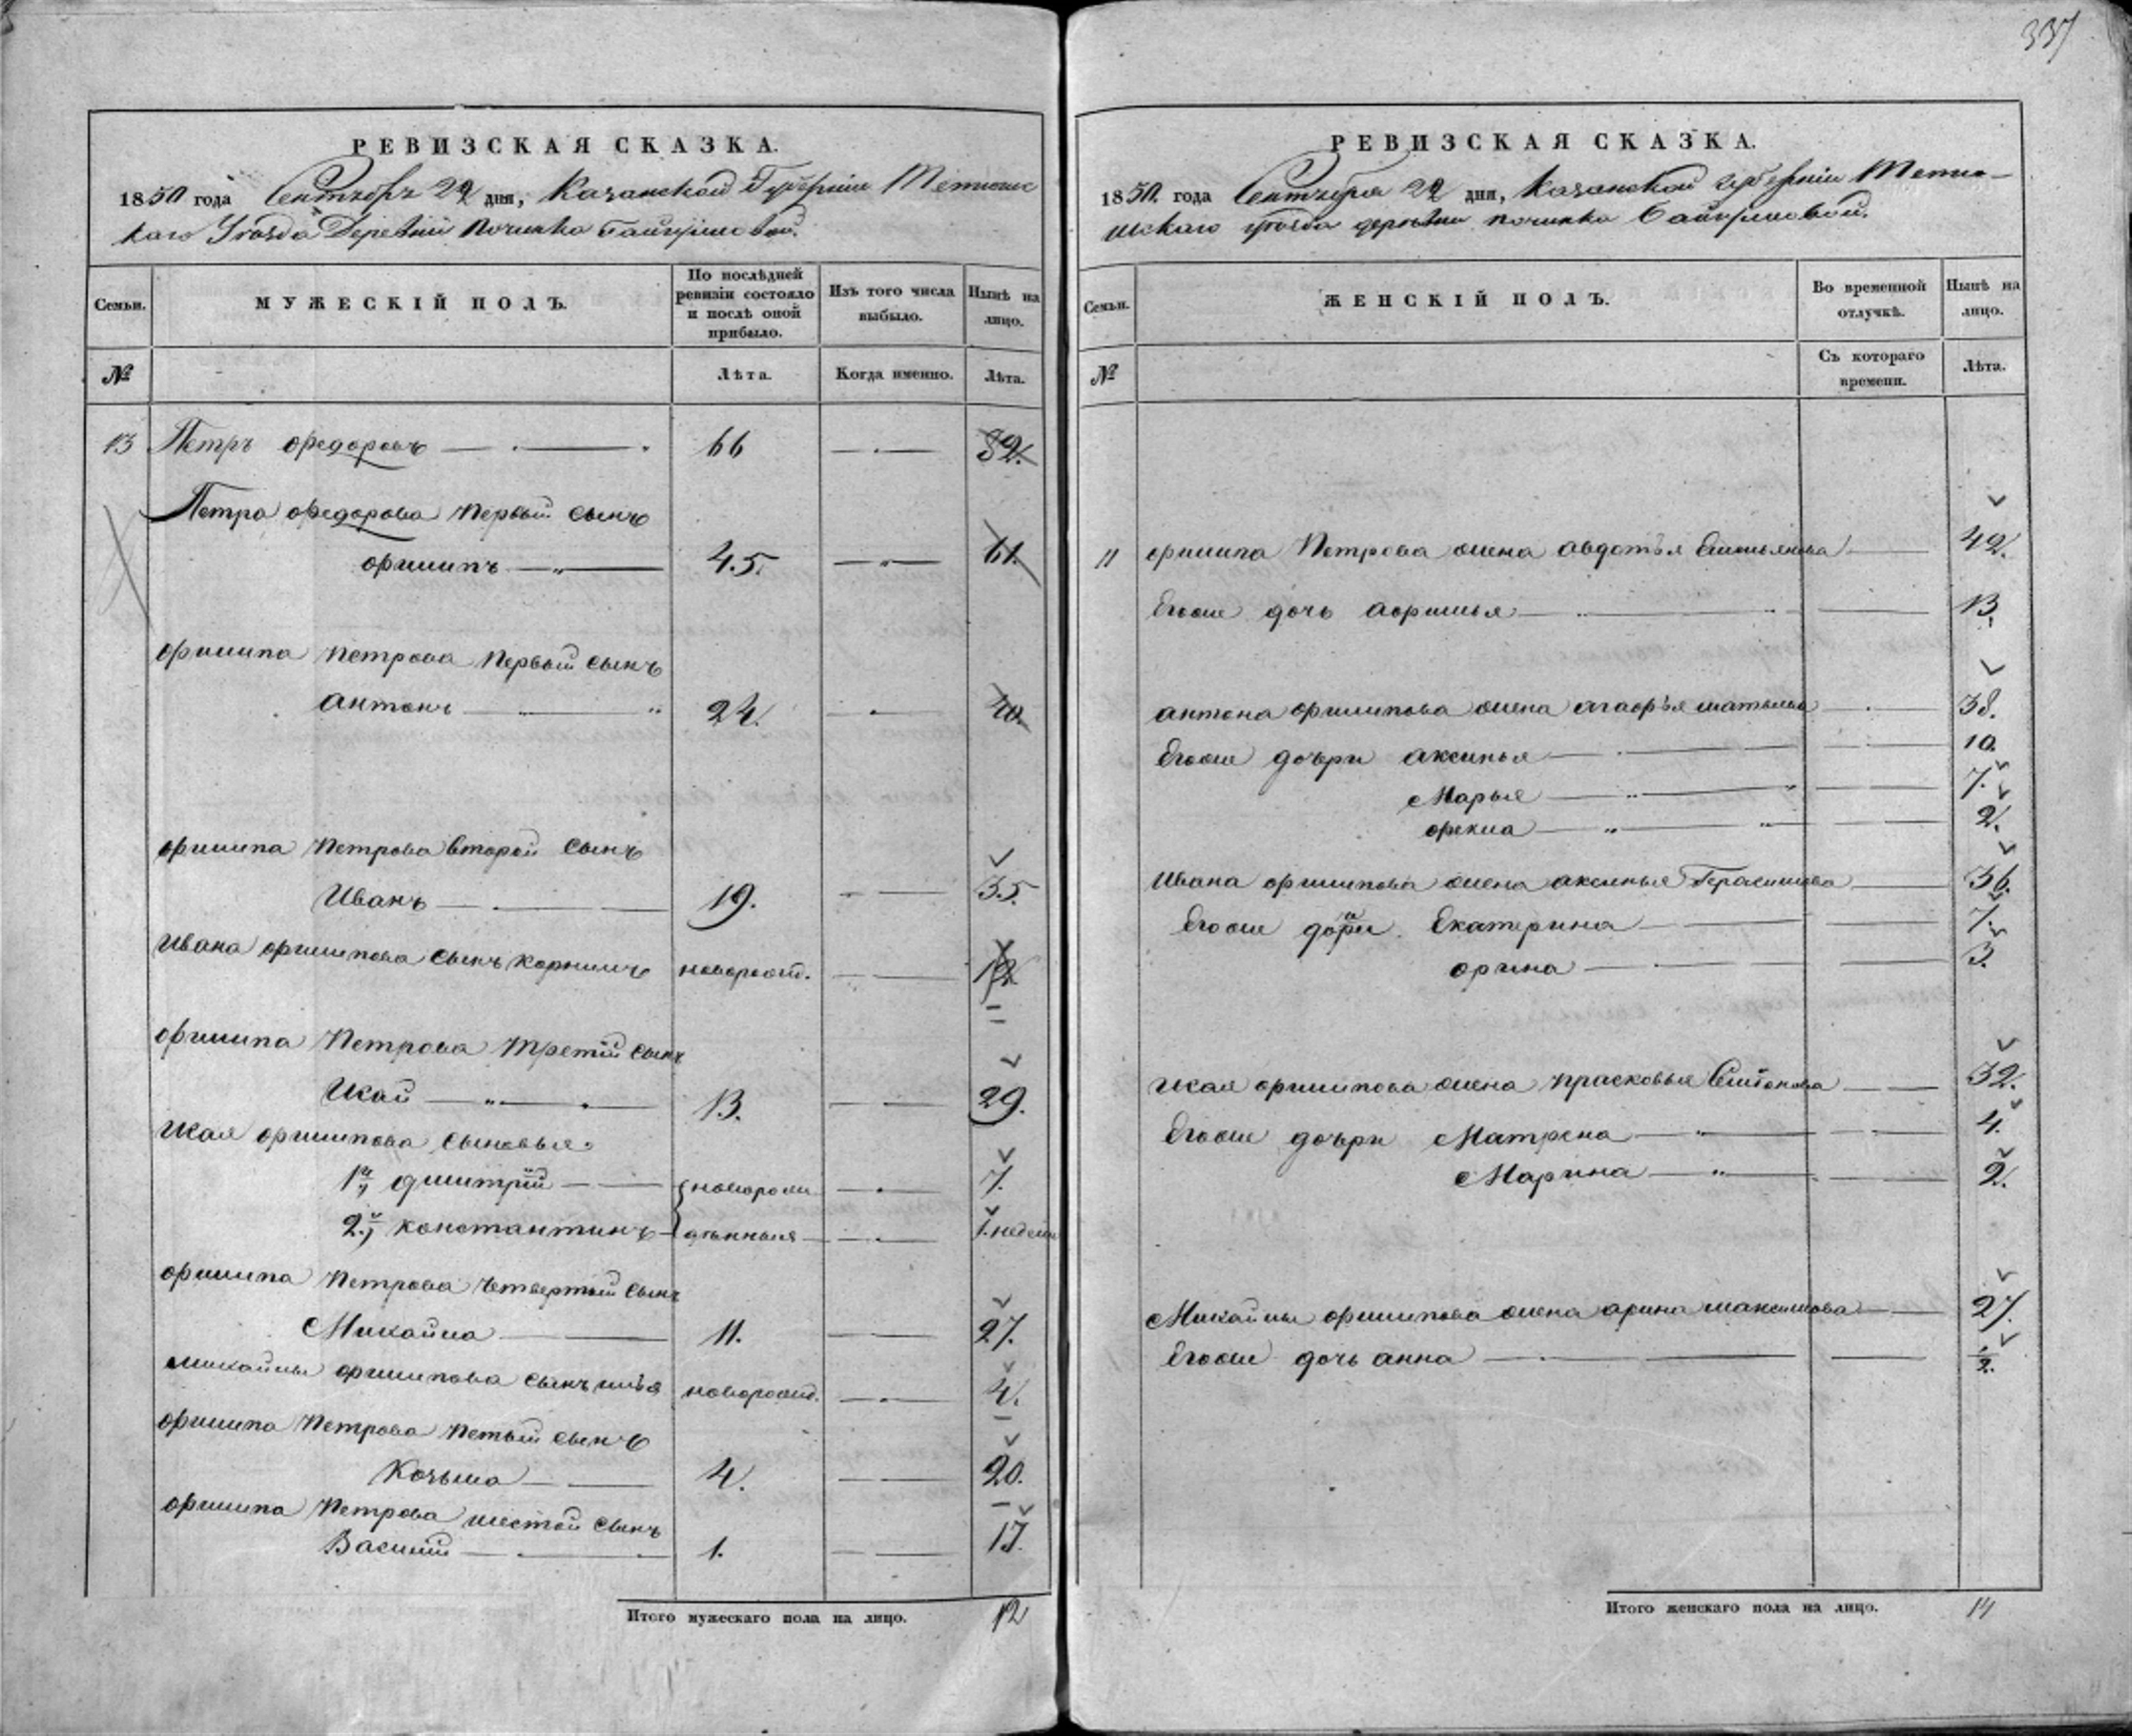 337
РЕВИЗСКАЯ СКАЗКА.
1850 года Сентября 22 дня, Казанской Губернии Тетюшс
каго Уѣзда Деревни Починка Байгуловой.
Семьи.
МУЖЕСКІЙ ПОЛЪ.
По послѣдней ревизіи состояло и послѣ оной прибыло.
Изъ того числа выбыло.
Нынѣ на лицо.
№
Лѣта.
Когда именно.
Лѣта.
13 Петръ Федоровъ 66 82.
Петра Федорова первый сынъ
Филипъ 45. 61.
Филипа Петрова первый сынъ
Антонъ 24. 40.
Филипа Петрова второй сынъ
Иванъ 19. 35.
Ивана Филипова сынъ Корнилъ новорожд. 12
Филипа Петрова третій сынъ
Икай 13. 29.
Икая Филипова сыновья
1й Дмитрій новорож 7.
2й Константинъ денныя 1. недели
Филипа Петрова четвертый сынъ
Микайла 11. 27.
Микайлы Филипова сынъ Илья новорожд. 4.
Филипа Петрова петый сынъ
Козьма 4. 20.
Филипа Петрова шестой сынъ
Василій 1. 17.
Итого мужескаго пола на лицо. 12
РЕВИЗСКАЯ СКАЗКА.
1850. года Сентября 22 дня, Казанской Губерніи Тетю-
шскаго уѣзда деревни починка Байгуловой.
Семьи.
ЖЕНСКІЙ ПОЛЪ.
Во временной отлучкѣ.
Нынѣ на лицо.
№
Съ котораго времени.
Лѣта.
11 Филипа Петрова жена Авдотья Емельянова 42.
Егоже дочь Афимья 13.
Антона Филипова жена Агафья 38.
Егоже дочъри Аксинья 10.
Марья 7.
Фекла 2.
Ивана Филипова жена Аксинья Герасимова 36.
Егоже дочри Екатерина 7.
Орина 3.
Икая Филипова жена Прасковья 32.
Егоже дочъри Матрена 4.
Марина 2.
Микайлы Филипова жена Арина Максимова 27.
Егоже дочь Анна 1/2.
Итого женскаго пола на лицо. 14